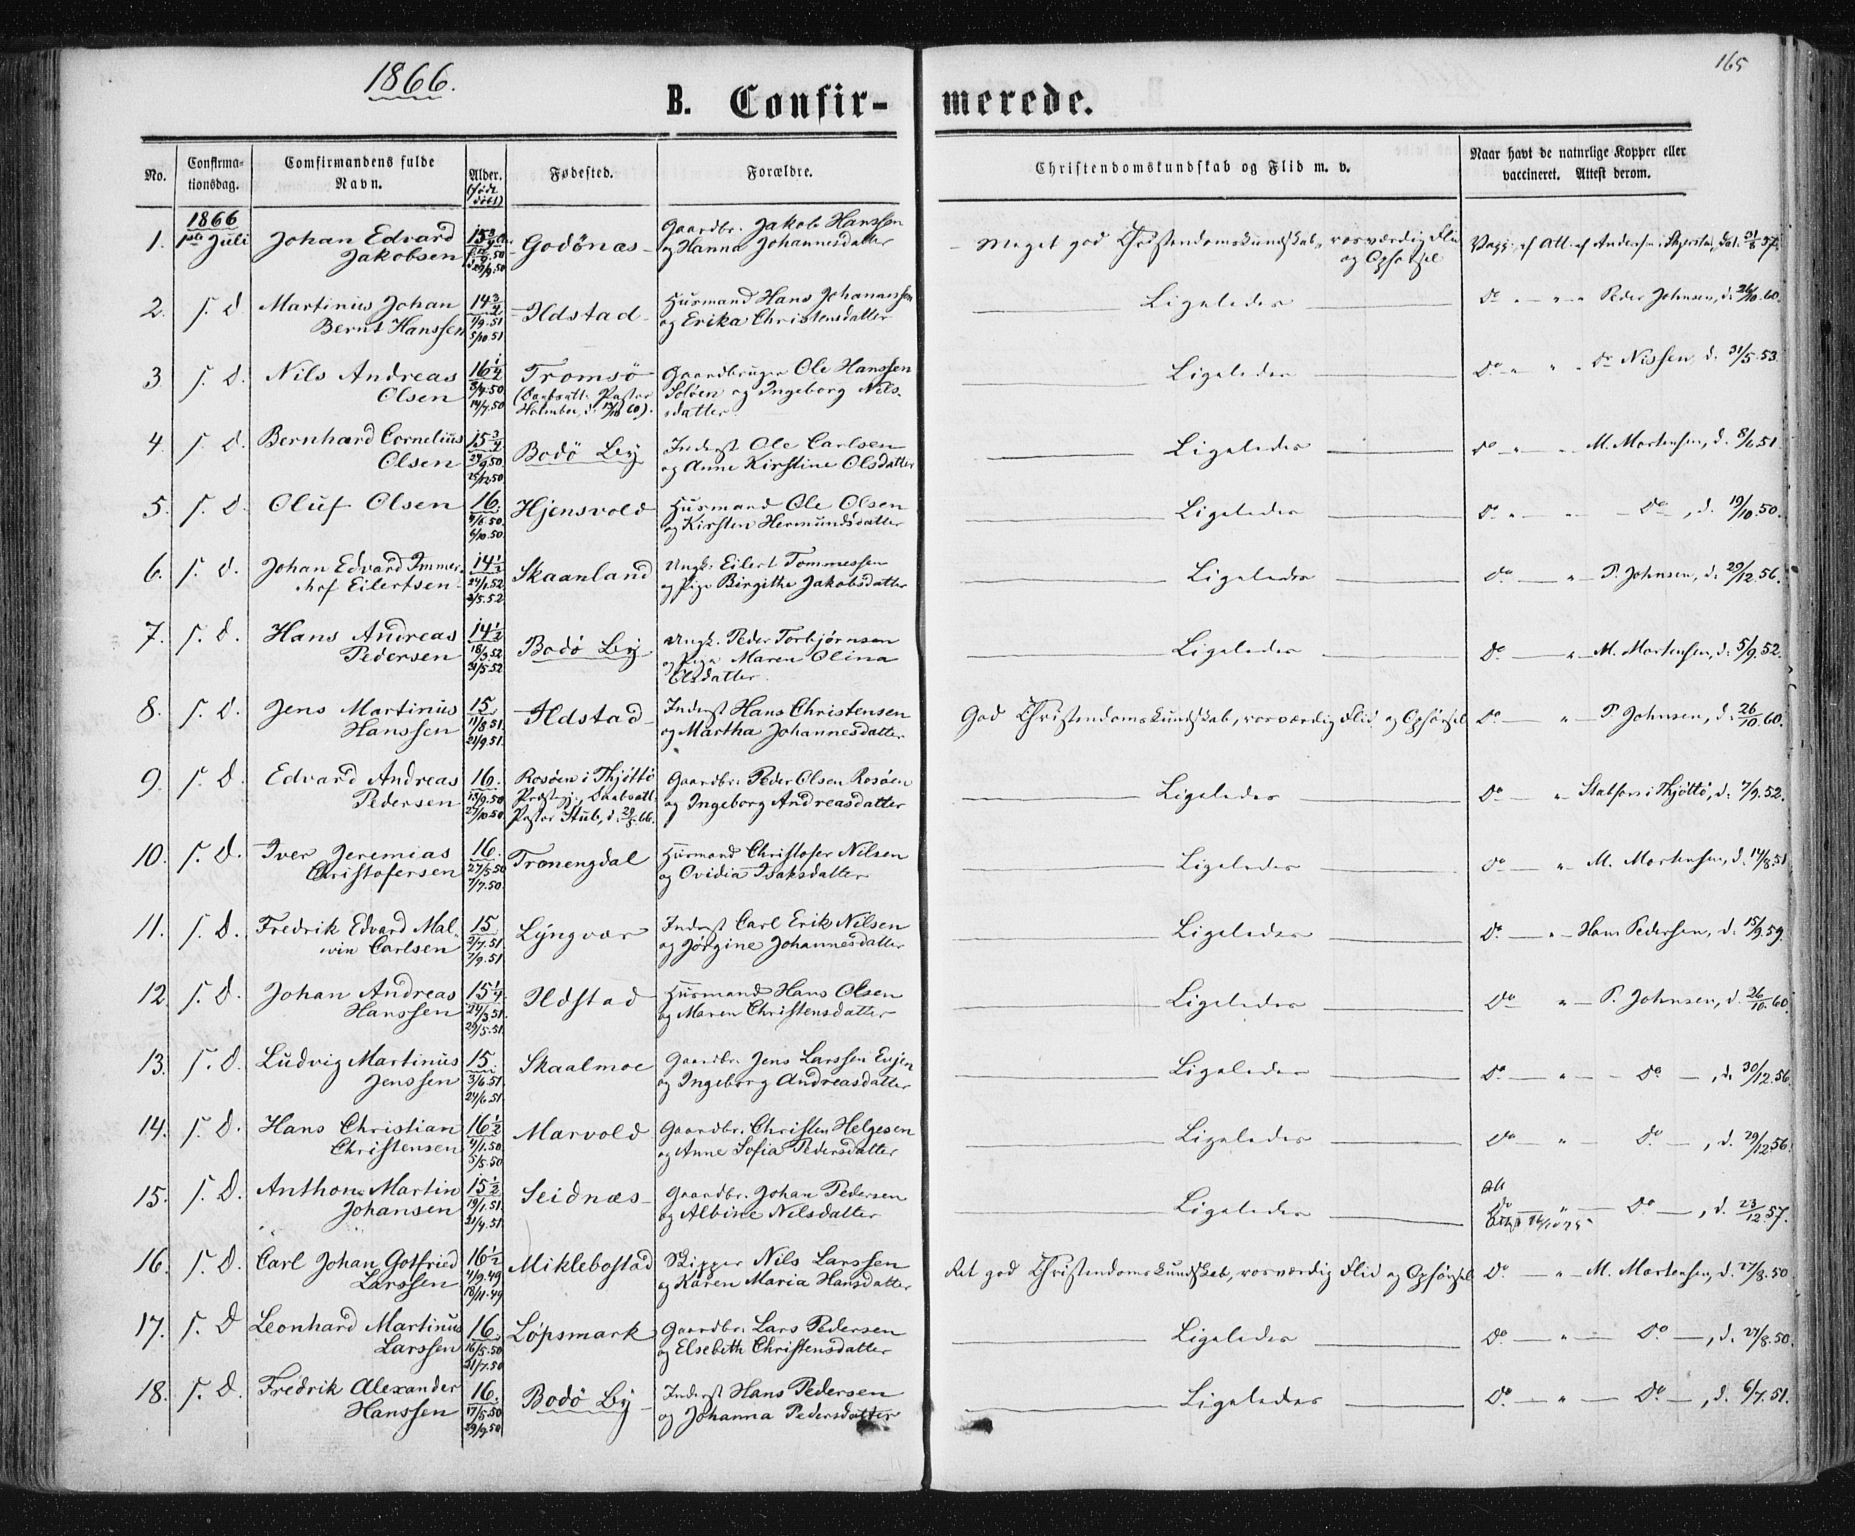 1866.
165
B. Confir-
merede.
No.
Confirma-
tionsdag.
Comfirmandens fulde
Navn.
Alder.
(født
døbt)
Fødested.
Forældre.
Christendomskundskab og Flid m. v.
Naar havt de naturlige Kopper eller
vaccineret. Attest derom.
1866
1. 1ste Juli Johan Edvard Jakobsen 15 3/4 Godønæs Gaardbr. Jakob Hanssen og Hanna Johannesdatter Meget god Christendomskundskab, rosværdig Flid og Opførsel Vacc. ef. Att. af Andersen
2. s. d. Martinius Johan Bernt Hanssen 14 3/4 7/9.51 5/10 51 Ildstad Husmand Hans Johannssen og Erika Christensdatter Ligeledes Do " " Peder Johnsen, d. 26/10.60.
3 s. d. Nils Andreas Olsen 16 1/2 3/4.50 14/7.50 Tromsø (Daabsatt. Pastor Holmboe, d. 60). Gaardbruger Ole Hanssen Soløen og Ingeborg Nils-datter Ligeledes Do " " Do Nissen d. 31/5.53
4 s. d. Bernhard Cornelius Olsen 15 3/4 25/12 50 Bodø By Inderst Ole Carlsen og Anne Kirstine Olsdatter Ligeledes Do " M. Mortensen, d. 8/6.51.
5. s. d. Oluf Olsen 16. 9/6.50 6/10.50 Hjensvold Husmand Ole Olsen og Kirsten Hermundsdatter Ligeledes Do " Do, d. 19/10.50.
6. s. d. Johan Edvard Immerhof Eilertsen 14 1/2 24/1.52 2/5.52 Skaanland Ungk. Eilert Tommessen og Pige Birgithe Jakobsdatter Ligeledes Do " P. Johnsen, d. 29/12.56.
7. s. d. Hans Andreas Pedersen 14 1/2 18/3.52 21/5.52 Bodø By Ungk. Peder Torbjørnsen og Pige Maren Olina Olsdatter. Ligeledes Do " M. Mortensen, d. 5/9.52.
8. s. d. Jens Martinus Hanssen 15 11/8 51 21/9.51. Ildstad Inderst Hans Christensen og Martha Johannesdatter God Christendomskundskab, rosværdig Flid og Opførsel Do " P. Johnsen, d. 26/10.60.
9. s. d. Edvard Andreas Pedersen 16. 15/9.50 27/10.50 Rosøen i Thjøttø Præstegj. Daabsatt. Pastor Stub, d. 66. Gaardbr. Peder Olsen Rosøen og Ingeborg Andreasdatter Ligeledes Do " i Thjøttø, d. 7/9.52.
10. s. d. Iver Jeremias Christofersen 16. 27/5.50 7/7.50 Tronengdal Husmand Christofer Nilsen og Ovidia Isaksdatter Ligeledes Do " M. Mortensen, d. 14/8.51
11. s. d. Fredrik Edvard Malwin Carlsen 15 2/7.51 7/9.51. Lyngvær Inderst Carl Erik Nilsen og Jørgine Johannesdatter Ligeledes Do " Hans Pedersen, d. 15/9.59.
12. s. d. Johan Andreas Hanssen 15 1/4 24/3.51. 29/5.51. Ildstad Husmand Hans Olsen og Maren Christensdatter Ligeledes Do " P. Johnsen, d. 26/10.60
13. s. d. Ludvig Martinus Jenssen 15. 3/6.51. 24/6.51. Skaalmoe Gaardbr. Jens Larssen Evjen og Ingeborg Andreasdatter Ligeledes Do " Do, d. 30/12.56.
14. s. d. Hans Christian Christensen 16 1/2 9/1.50 5/5.50 Marvold Gaardbr. Christen Helgesen og Anne Sofia Pedersdatter Ligeledes Do " Do, d. 29/12 56.
15. s. d. Anthon Martin Johansen 15 1/2 19/1.51. 21/4.51. Seidnæs Gaardbr. Johan Pedersen og Albine Nilsdatter Ligeledes Do " Do, d. 23/12 57.
16. s. d. Carl Johan Gotfried Larssen 16 1/2 4/9.49 18/11.49 Miklebostad Skipper Nils Larssen og Karen Maria Hansdatter Ret god Christendomskundskab, rosværdig Flid og Opførsel Do " M. Mortensen, d. 27/8.50.
17. s. d Leonhard Martinus Larssen 16. 16/5.50 21/7.50 Løpsmark Gaardbr. Lars Pedersen og Elsebeth Christensdatter Ligeledes Do " Do, d. 27/8.50.
18. s. d. Fredrik Alexander Hanssen 16. 17/5.50 29/9.50 Bodø By Inderst Hans Pedersen og Johanna Pedersdatter Ligeledes Do " Do, d. 6/7.51.